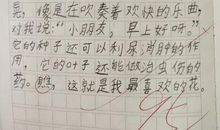 晃，像是在吹奏着欢快的乐曲，
对我说：“小朋友，早上好呀。”
它的种子还可以利尿消肿的作
用，它的叶子还能做治虫伤的
药。瞧，这就是我最喜欢的花。
95